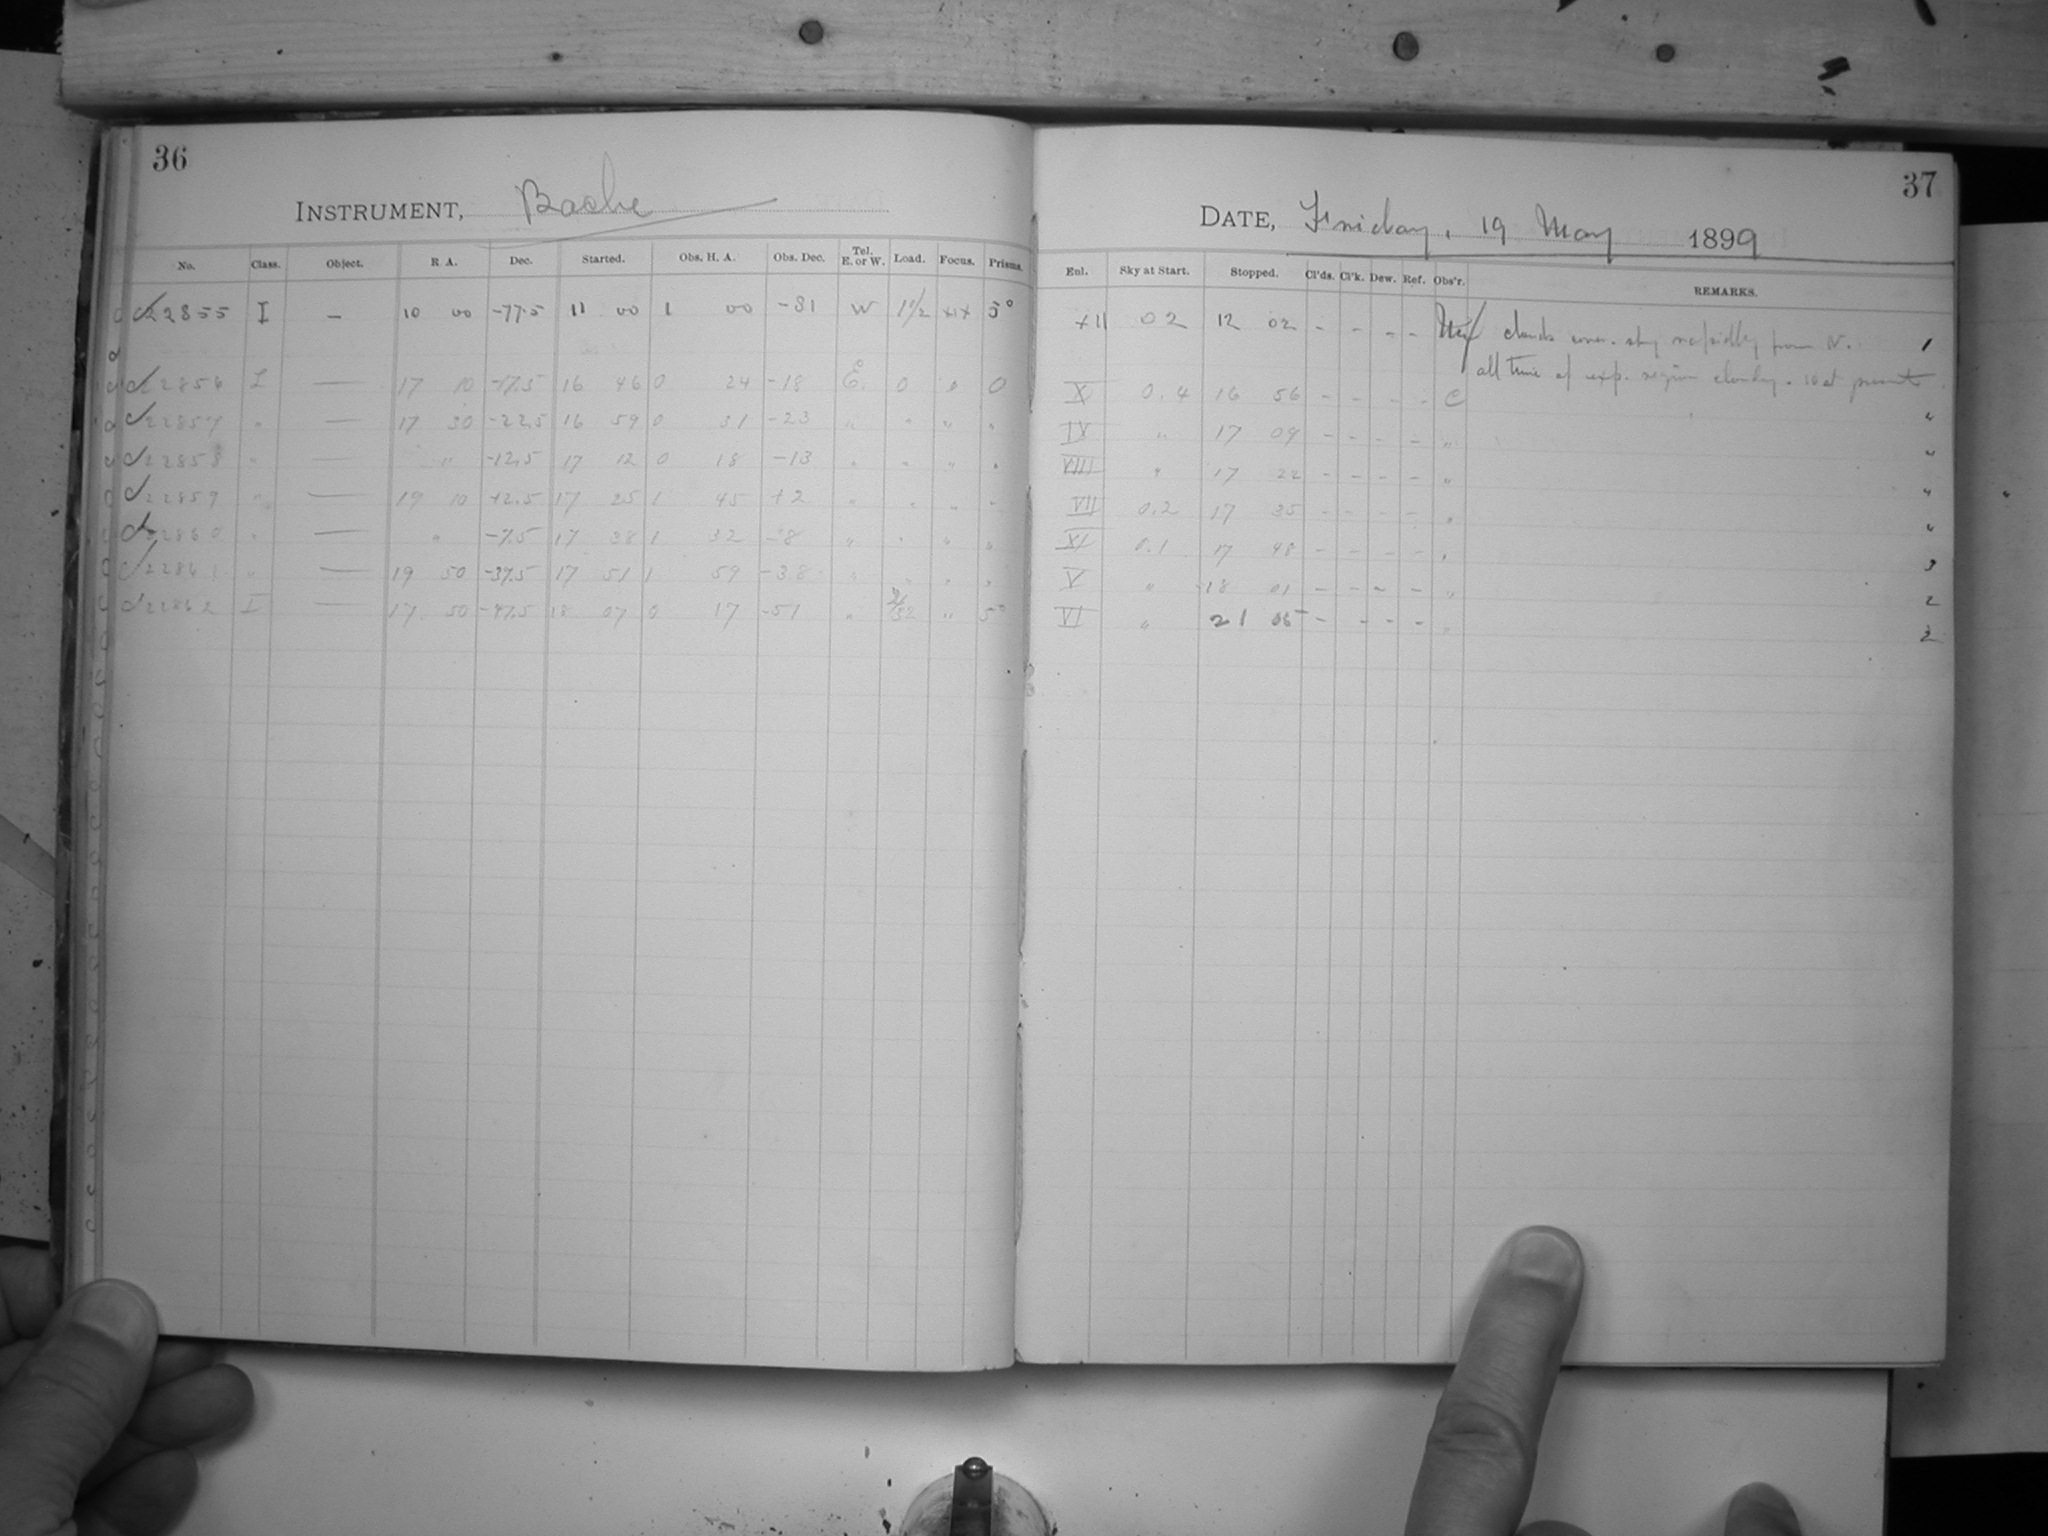 36
INSTRUMENT, Bache
No. Class. Object. R. A. Dec. Started. Obs. H. A. Obs. Dec. Tel. E. or W. Load. Focus. Prisms.
22855 I — 10 00 -77.5 11 00 1 00 -81 W 1 1/2 5°
22856 L — 17 10 -17.5 16 46 0 24 -18 E. 0 " 0
22857 " 17 30 -22.5 16 59 0 31 -23 " " " "
22858 " " -12.5 17 12 0 18 -13 " " " "
22859 " — 19 10 +2.5 17 25 1 45 +2 " " " "
22860 " — " -7.5 17 38 1 32 -8 " " " "
22861 " — 19 50 -37.5 17 51 1 59 -38 " " " "
22862 I — 17 50 -47.5 18 07 0 17 -51 " " 5°
37
DATE, Friday, 19 May 1899
Enl. Sky at Start. Stopped. Cl'ds. Cl'k. Dew. Ref. Obs'r. REMARKS.
XII 02 12 02 - - - - clouds cover sky rapidly from N. 1
all time of exp. region cloudy. 10 at present
X 0.4 16 56 - - - - C "
IV " 17 09 - - - - " "
VIII " 17 22 - - - - " "
VII 0.2 17 35 - - - - " "
XI 0.1 17 48 - - - - " 3
V " 18 01 - - - - " 2
VI " 21 05 - - - - " 2